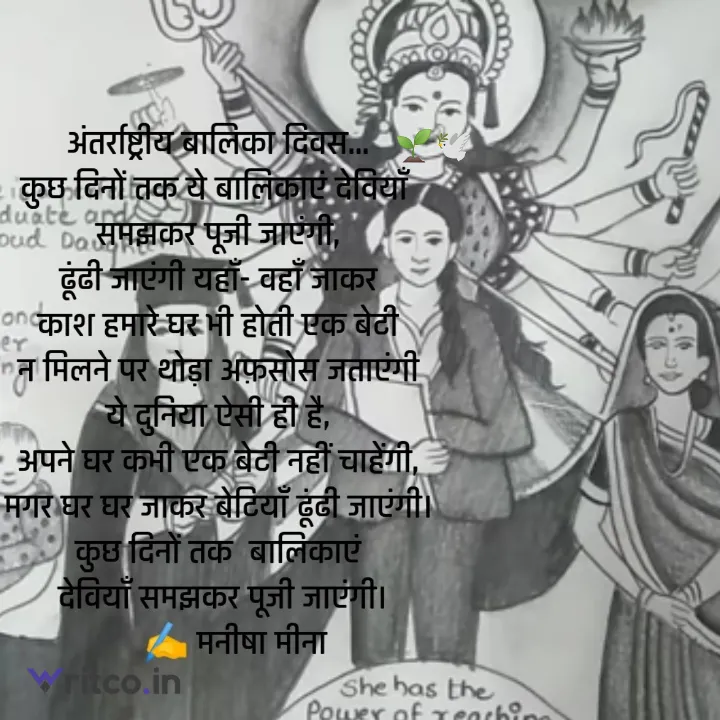 अंतर्राष्ट्रीय बालिका दिवस... 🌱🕊️
कुछ दिनों तक ये बालिकाएं देवियाँ
समझकर पूजी जाएंगी,
ढूंढी जाएंगी यहाँ- वहाँ जाकर
काश हमारे घर भी होती एक बेटी
न मिलने पर थोड़ा अफ़सोस जताएंगी
ये दुनिया ऐसी ही है,
अपने घर कभी एक बेटी नहीं चाहेंगी,
मगर घर घर जाकर बेटियाँ ढूंढी जाएंगी।
कुछ दिनों तक बालिकाएं
देवियाँ समझकर पूजी जाएंगी।
✍️ मनीषा मीना
writco.in
She has the
Power of reaching